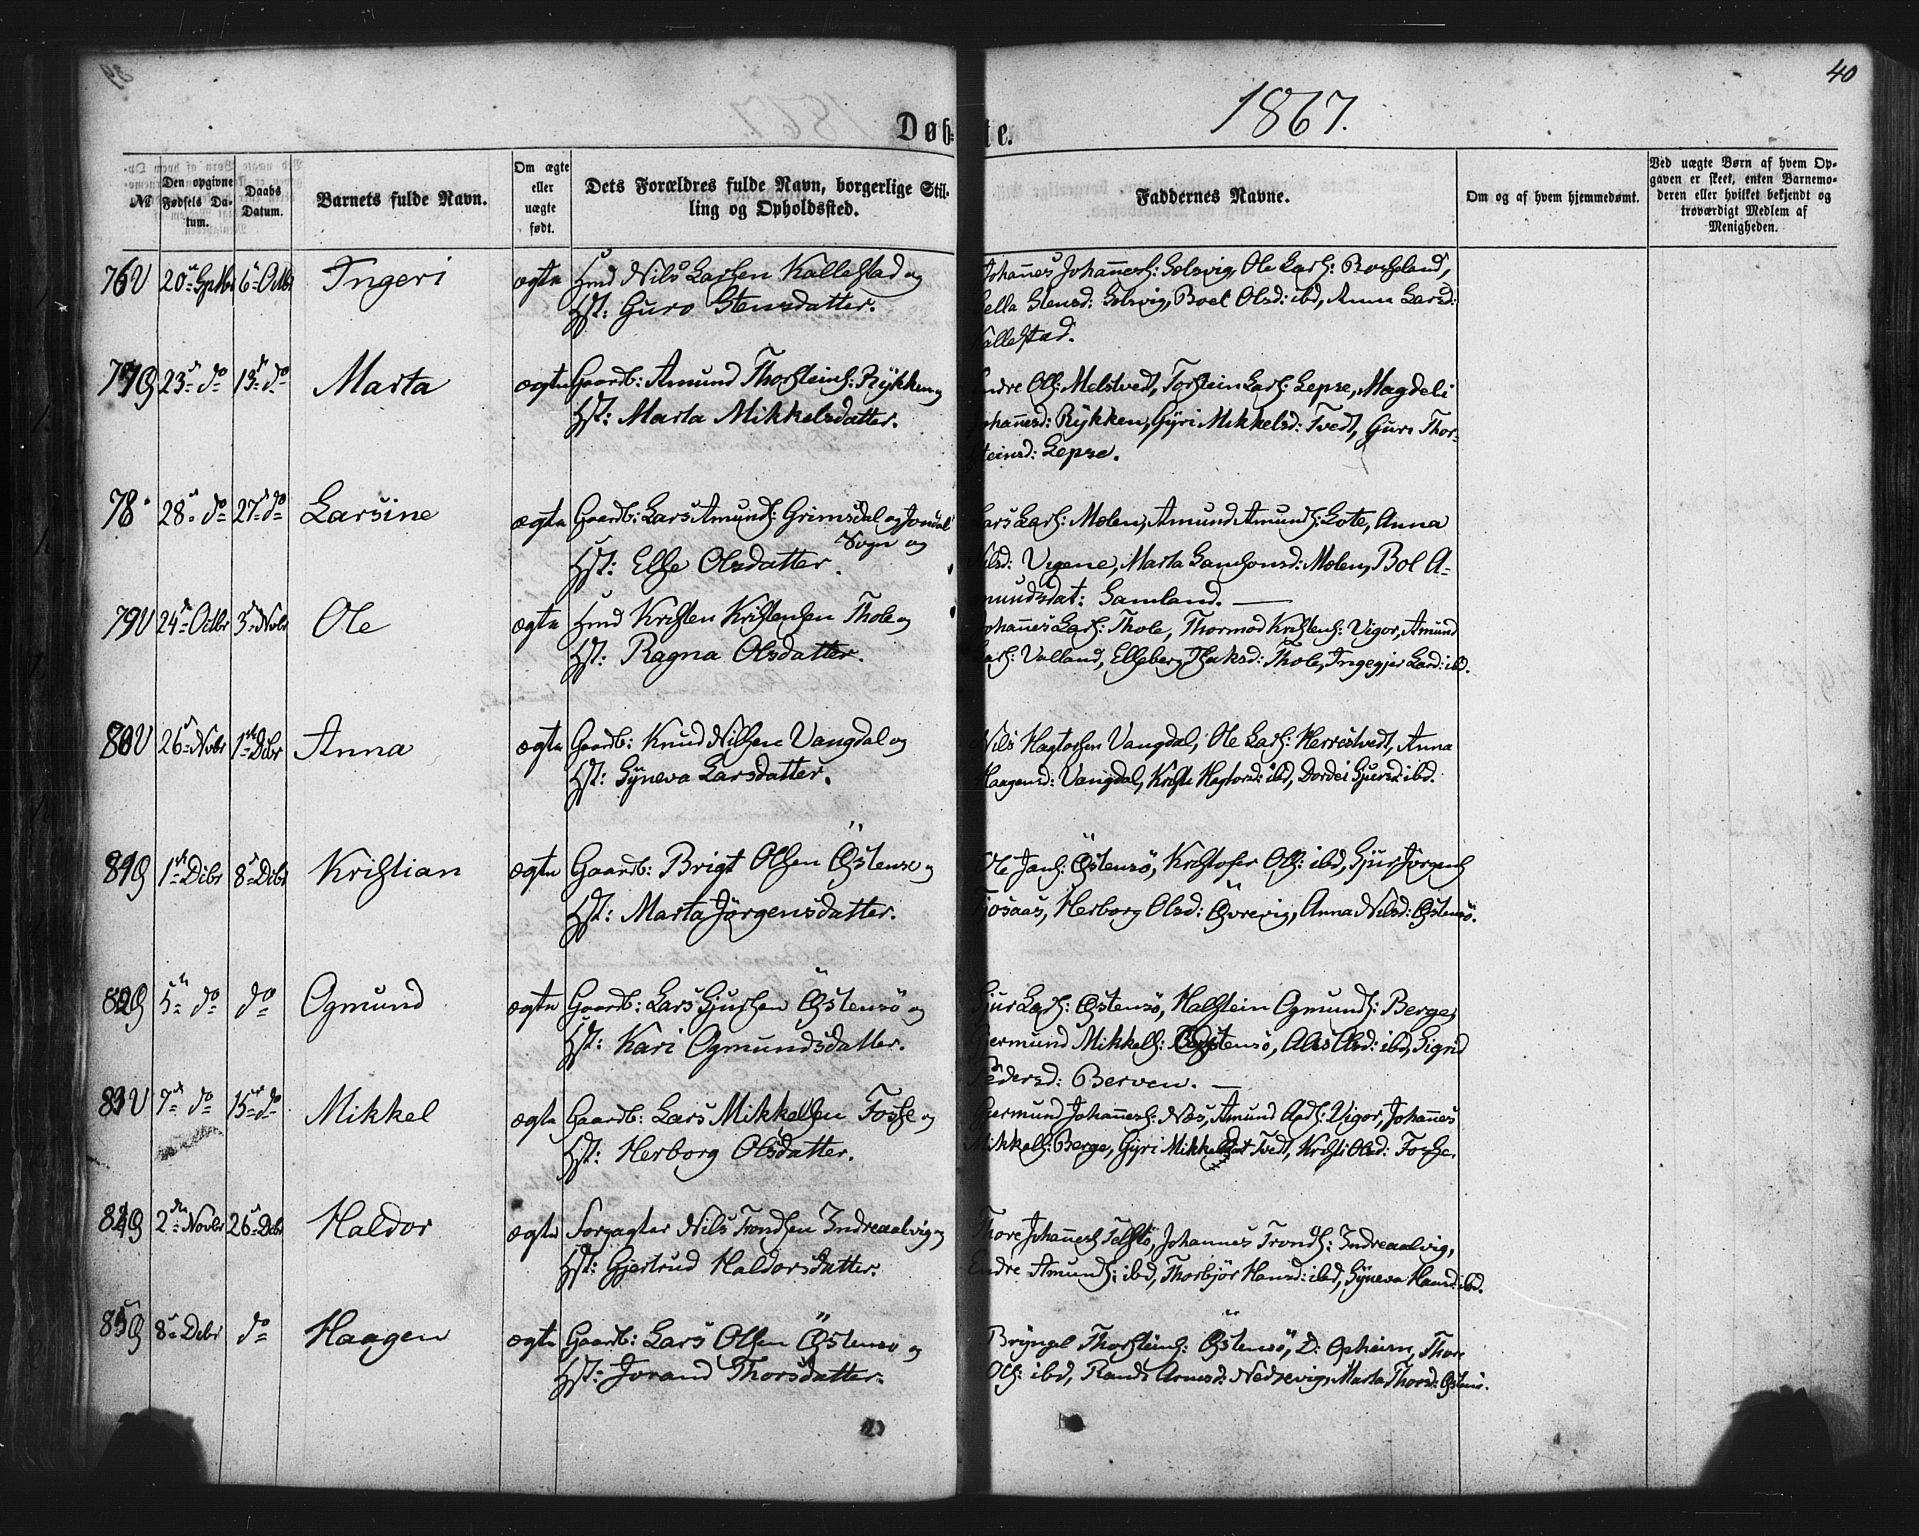 40
1867.
Døb-te.
№
Den opgivne Fødsels Da-tum.
Daabs Datum.
Barnets fulde Navn.
Om ægte eller uægte født.
Dets Forældres fulde Navn, borgerlige Stil-
ling og Opholdssted.
Faddernes Navne.
Om og af hvem hjemmedøbt.
Ved uægte Børn af hvem Op-
gaven er skeet, enten Barnemo-
deren eller hvilket bekjendt og
troværdigt Medlem af
Menigheden.
76V 20 Sptbr 6 Octbr Ingeri ægte Hmd Nils Larsen Kallestad og
Hst: Guro Stensdatter.
Johannes Johanness: Solsvig, Ole Lars:
Stensd: Solsvig, Boel Olsd: ibd, Anna Larsd:
Kallestad.
77G 23 do 13 do Marta ægte Gaardb: Amund Thorsteins: Rykken og
Hst: Marta Mikkelsdatter.
Endre Ols: Melstvedt, Torstein Lars: Lepse, Magdeli
Johannesd: Rykken, Gyri Mikkelsd: Tvedt, Guro Thor-
steinsd: Lepse.
78 28 do 27 do Larsine ægte Gaardb: Lars Amunds: Grimsdal og Jondal
Sogn og
Hst: Else Olsdatter.
Lars Lars: Molen, Amund Amunds: Lote, Anna
Nilsd: Vigene, Marta Samsonsd: Molen, Bol A-
mundsdat: Samland.
79V 24 Octbr 3 Novbr Ole ægte Hmd Kristen Kristensen Thole og
Hst: Ragna Olsdatter.
Johannes Lars: Thole, Thormod Kristens: Vigor, Amund
Lars: Valland, Elseberg Isaksd: Thole, Ingegjer Larsd: ibd.
80V 26 Novbr 1ste Debr Anna ægte Gaardb: Knud Nilsen Vangdal og
Hst: Syneva Larsdatter.
Nils Hagtorsen Vangdal, Ole Lars: Herrestvedt, Anna
Haagensd: Vangdal, Kristi Hagtorsd: ibd, Dordei Sjursd: ibd.
81G 1ste Debr 8 Debr Kristian ægte Gaardb: Brigt Olsen Østensø og
Hst: Marta Jørgensdatter.
Ole Jans: Østensø, Kristofer Ols: ibd, Sjur Jørgens
Fosaas, Herborg Olsd: Øvrevig, Anna Nilsd: Østensø.
82G 5 do do Ogmund ægte Gaardb: Lars Sjursen Østensø og
Hst: Kari Ogmundsdatter.
Sjur Lars: Østensø, Halstein Ogmunds: Berge,
Germund Mikkels: Østensø, Olsd: ibd, Sigrid
Pedersd: Berven.
83V 7 do 15 do Mikkel ægte Gaardb: Lars Mikkelsen Fosse og
Hst: Herborg Olsdatter.
Germund Johanness: Næs, Amund Vigor, Johannes
Mikkels: Berge, Gyri Mikkelsdat Tvedt, Kristi Olsd: Fosse.
84G 2 Novbr 26 Debr Haldor ægte Forpagter Nils Trondsen Indreaalvig og
Hst: Gjertrud Haldorsdatter.
Thore Johanness: Johannes Tronds: Indreaalvig,
Endre Amunds: ibd, Thorbjør Hansd: ibd, Syneva Hansd: ibd.
85G 8 Debr do Haagen ægte Gaardb: Lars Olsen Østensø og
Hst: Jorand Thorsdatter.
Bryngel Thorsteins: Østensø, D: Opheim, Thore
Ols: ibd, Randi Arnesd: Nedrevig, Marta Thorsd: Østensø.